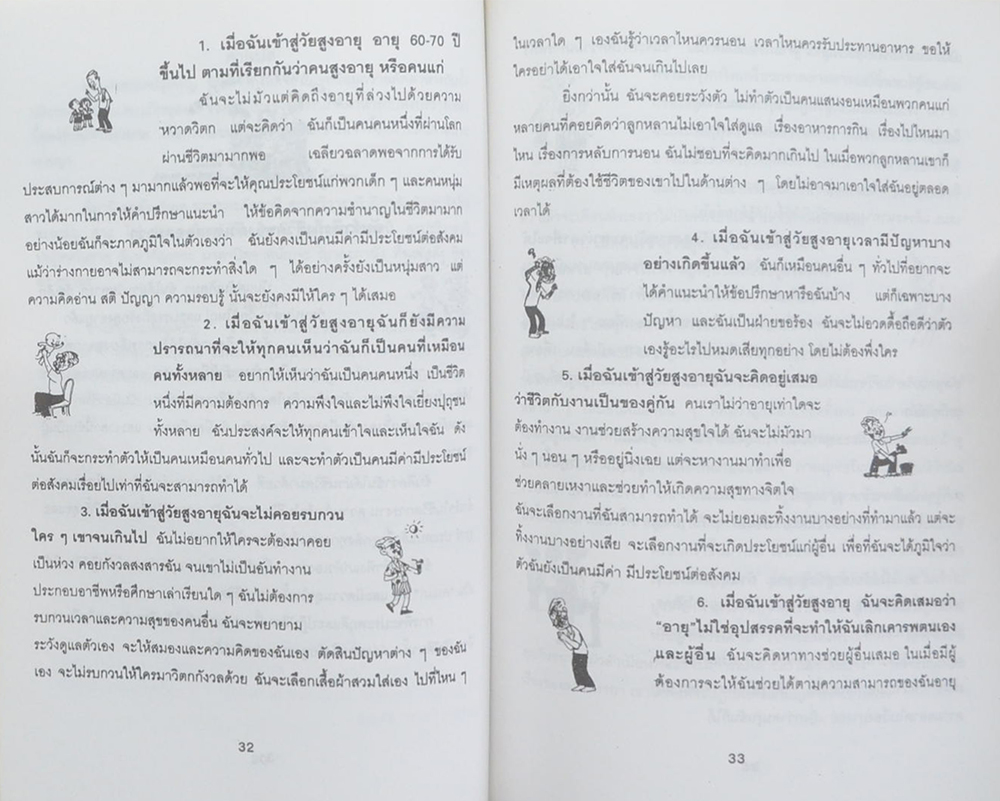 1. เมื่อฉันเข้าสู่วัยสูงอายุ อายุ 60-70 ปี
ขึ้นไป ตามที่เรียกกันว่าคนสูงอายุ หรือคนแก่
ฉันจะไม่มัวแต่คิดถึงอายุที่ล่วงไปด้วยความ
หวาดวิตก แต่จะคิดว่า ฉันก็เป็นคนคนหนึ่งที่ผ่านโลก
ผ่านชีวิตมามากพอ เฉลียวฉลาดพอจากการได้รับ
ประสบการณ์ต่าง ๆ มามากแล้วพอที่จะให้คุณประโยชน์แก่พวกเด็ก ๆ และคนหนุ่ม
สาวได้มากในการให้คำปรึกษาแนะนำ ให้ข้อคิดจากความชำนาญในชีวิตมามาก
อย่างน้อยฉันก็จะภาคภูมิใจในตัวเองว่า ฉันยังคงเป็นคนมีค่ามีประโยชน์ต่อสังคม
แม้ว่าร่างกายอาจไม่สามารถจะกระทำสิ่งใด ๆ ได้อย่างครั้งยังเป็นหนุ่มสาว แต่
ความคิดอ่าน สติ ปัญญา ความรอบรู้ นั้นจะยังคงมีให้ใคร ๆ ได้เสมอ
2. เมื่อฉันเข้าสู่วัยสูงอายุฉันก็ยังมีความ
ปรารถนาที่จะให้ทุกคนเห็นว่าฉันก็เป็นคนที่เหมือน
คนทั้งหลาย อยากให้เห็นว่าฉันเป็นคนคนหนึ่ง เป็นชีวิต
หนึ่งที่มีความต้องการ ความพึงใจและไม่พึงใจเยี่ยงปุถุชน
ทั้งหลาย ฉันประสงค์จะให้ทุกคนเข้าใจและเห็นใจฉัน ดัง
นั้นฉันก็จะกระทำตัวให้เป็นคนเหมือนคนทั่วไป และจะทำตัวเป็นคนมีค่ามีประโยชน์
ต่อสังคมเรื่อยไปเท่าที่ฉันจะสามารถทำได้
3. เมื่อฉันเข้าสู่วัยสูงอายุฉันจะไม่คอยรบกวน
ใคร ๆ เขาจนเกินไป ฉันไม่อยากให้ใครจะต้องมาคอย
เป็นห่วง คอยกังวลสงสารฉัน จนเขาไม่เป็นอันทำงาน
ประกอบอาชีพหรือศึกษาเล่าเรียนใด ๆ ฉันไม่ต้องการ
รบกวนเวลาและความสุขของคนอื่น ฉันจะพยายาม
ระวังดูแลตัวเอง จะให้สมองและความคิดของฉันเอง ตัดสินปัญหาต่าง ๆ ของฉัน
เอง จะไม่รบกวนให้ใครมาวิตกกังวลด้วย ฉันจะเลือกเสื้อผ้าสวมใส่เอง ไปที่ไหน ๆ
32
ในเวลาใด ๆ เองฉันรู้ว่าเวลาไหนควรนอน เวลาไหนควรรับประทานอาหาร ขอให้
ใครอย่าได้เอาใจใส่ฉันจนเกินไปเลย
ยิ่งกว่านั้น ฉันจะคอยระวังตัว ไม่ทำตัวเป็นคนแสนงอนเหมือนพวกคนแก่
หลายคนที่คอยคิดว่าลูกหลานไม่เอาใจใส่ดูแล เรื่องอาหารการกิน เรื่องไปไหนมา
ไหน เรื่องการหลับการนอน ฉันไม่ชอบที่จะคิดมากเกินไป ในเมื่อพวกลูกหลานเขาก็
มีเหตุผลที่ต้องใช้ชีวิตของเขาไปในด้านต่าง ๆ โดยไม่อาจมาเอาใจใส่ฉันอยู่ตลอด
เวลาได้
4. เมื่อฉันเข้าสู่วัยสูงอายุเวลามีปัญหาบาง
อย่างเกิดขึ้นแล้ว ฉันก็เหมือนคนอื่น ๆ ทั่วไปที่อยากจะ
ได้คำแนะนำให้ข้อปรึกษาหารือฉันบ้าง แต่ก็เฉพาะบาง
ปัญหา และฉันเป็นฝ่ายขอร้อง ฉันจะไม่อวดดื้อถือดีว่าตัว
เองรู้อะไรไปหมดเสียทุกอย่าง โดยไม่ต้องพึ่งใคร
5. เมื่อฉันเข้าสู่วัยสูงอายุฉันจะคิดอยู่เสมอ
ว่าชีวิตกับงานเป็นของคู่กัน คนเราไม่ว่าอายุเท่าใดจะ
ต้องทำงาน งานช่วยสร้างความสุขใจได้ ฉันจะไม่มัวมา
นั่ง ๆ นอน ๆ หรืออยู่นิ่งเฉย แต่จะหางานมาทำเพื่อ
ช่วยคลายเหงาและช่วยทำให้เกิดความสุขทางจิตใจ
ฉันจะเลือกงานที่ฉันสามารถทำได้ จะไม่ยอมละทิ้งงานบางอย่างที่ทำมาแล้ว แต่จะ
ทิ้งงานบางอย่างเสีย จะเลือกงานที่จะเกิดประโยชน์แก่ผู้อื่น เพื่อที่ฉันจะได้ภูมิใจว่า
ตัวฉันยังเป็นคนมีค่า มีประโยชน์ต่อสังคม
6. เมื่อฉันเข้าสู่วัยสูงอายุ ฉันจะคิดเสมอว่า
"อายุ" ไม่ใช่อุปสรรคที่จะทำให้ฉันเลิกเคารพตนเอง
และผู้อื่น ฉันจะคิดหาทางช่วยผู้อื่นเสมอ ในเมื่อมีผู้
ต้องการจะให้ฉันช่วยได้ตามความสามารถของฉันอายุ
33